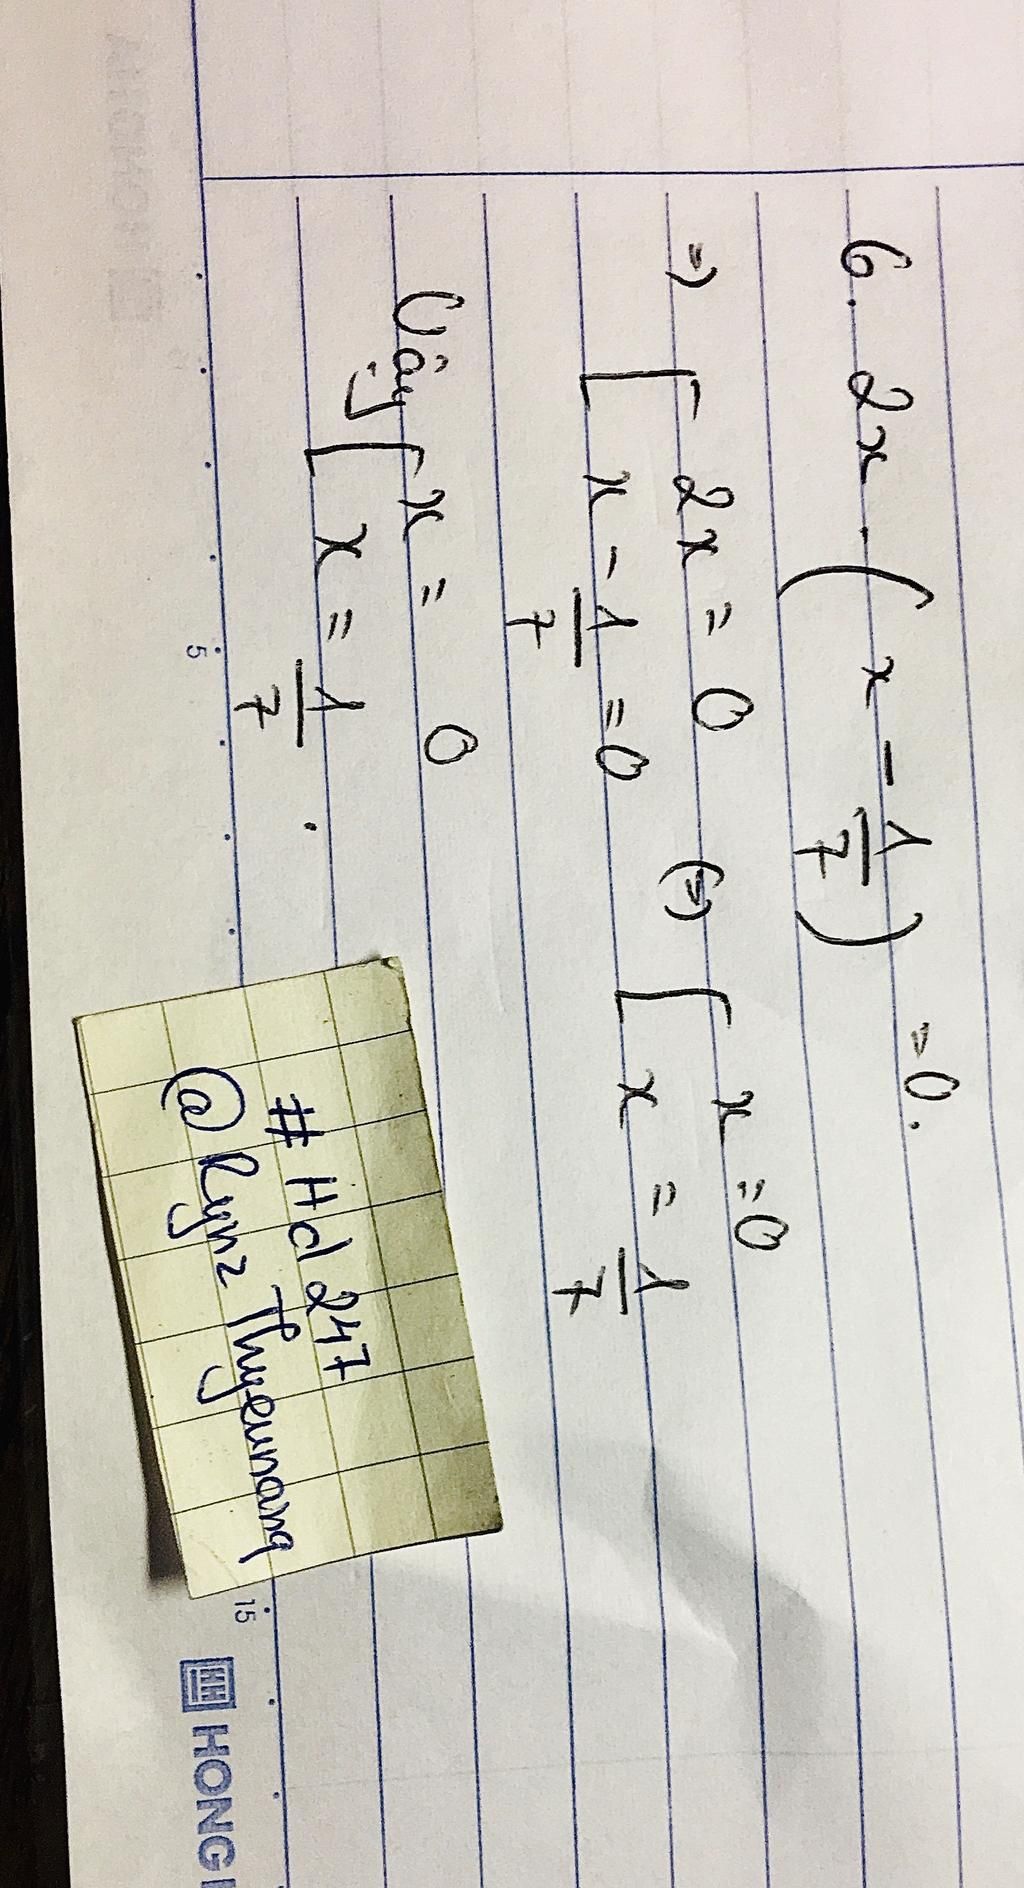 6. 2x . ( x - 1/7 ) = 0.
=> [ 2x = 0 (=>) [ x = 0
x - 1/7 = 0 x = 1/7
Vậy [ x = 0
x = 1/7 .
# Hd 247
@ Rynz Thyeunang
5
15
HONG